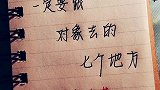 一定要做
对象去的
七个地方